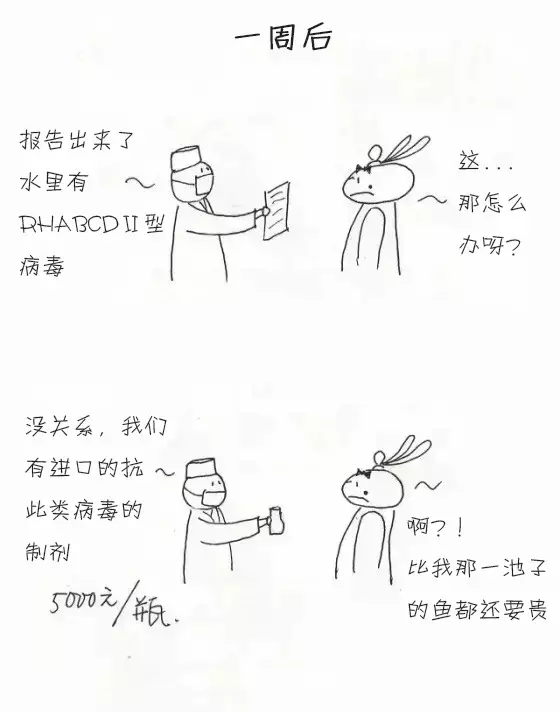 一周后
报告出来了
水里有
RHABCDⅡ型
病毒
这...
那怎么
办呀?
没关系，我们
有进口的抗
此类病毒的
制剂
5000元/瓶.
啊?!
比我那一池子
的鱼都还要贵